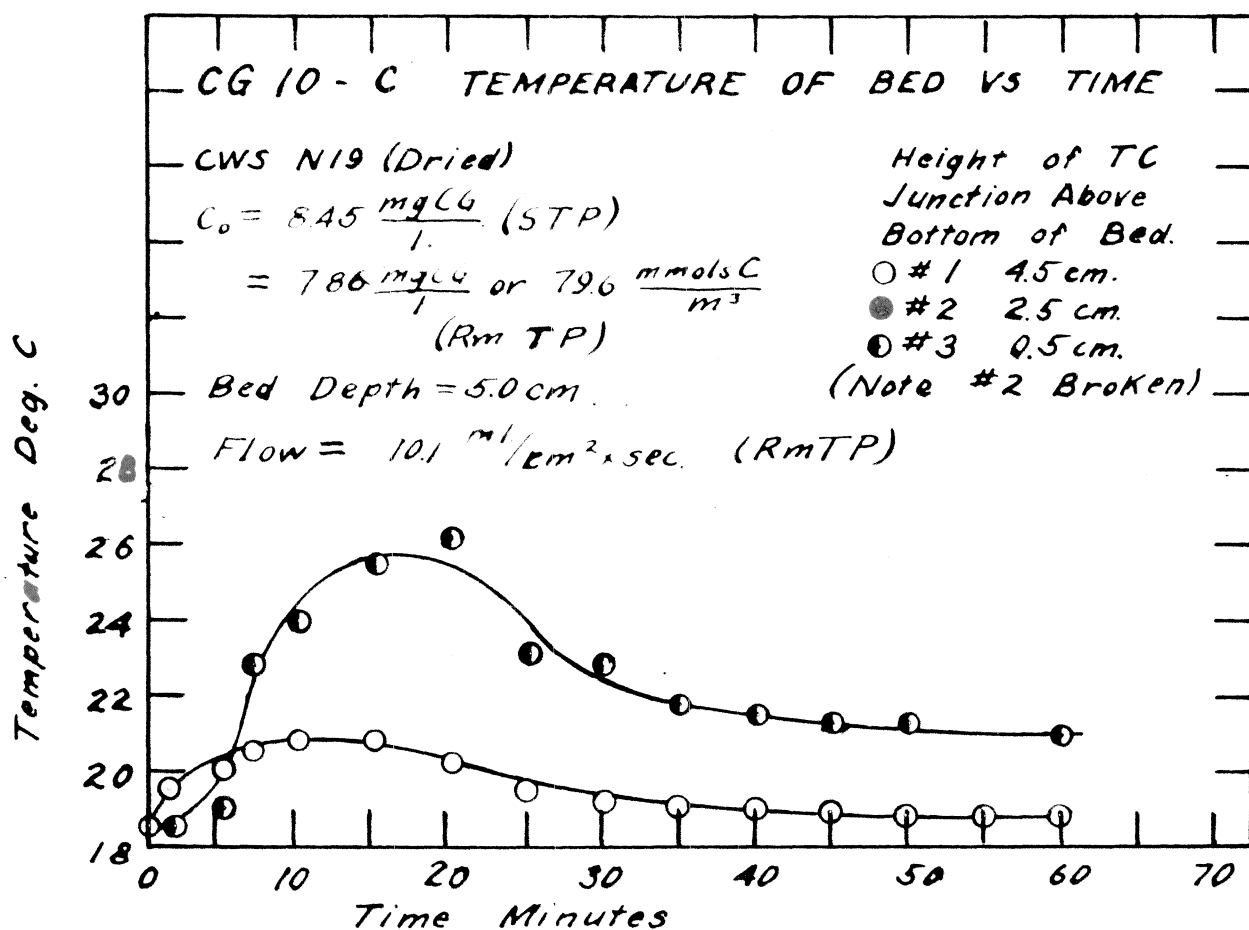 CG 10 - C TEMPERATURE OF BED VS TIME
CWS N19 (Dried)
C₀ = 8.45 mgCG/l. (STP)
= 7.86 mgCG/l or 79.6 mmolsC/m³
(Rm TP)
Bed Depth = 5.0 cm.
Flow = 10.1 ml/cm² × sec. (RmTP)
Height of TC
Junction Above
Bottom of Bed.
#1 4.5 cm.
#2 2.5 cm.
#3 0.5 cm.
(Note #2 Broken)
Temperature Deg. C
30
28
26
24
22
20
18
0 10 20 30 40 50 60 70
Time Minutes